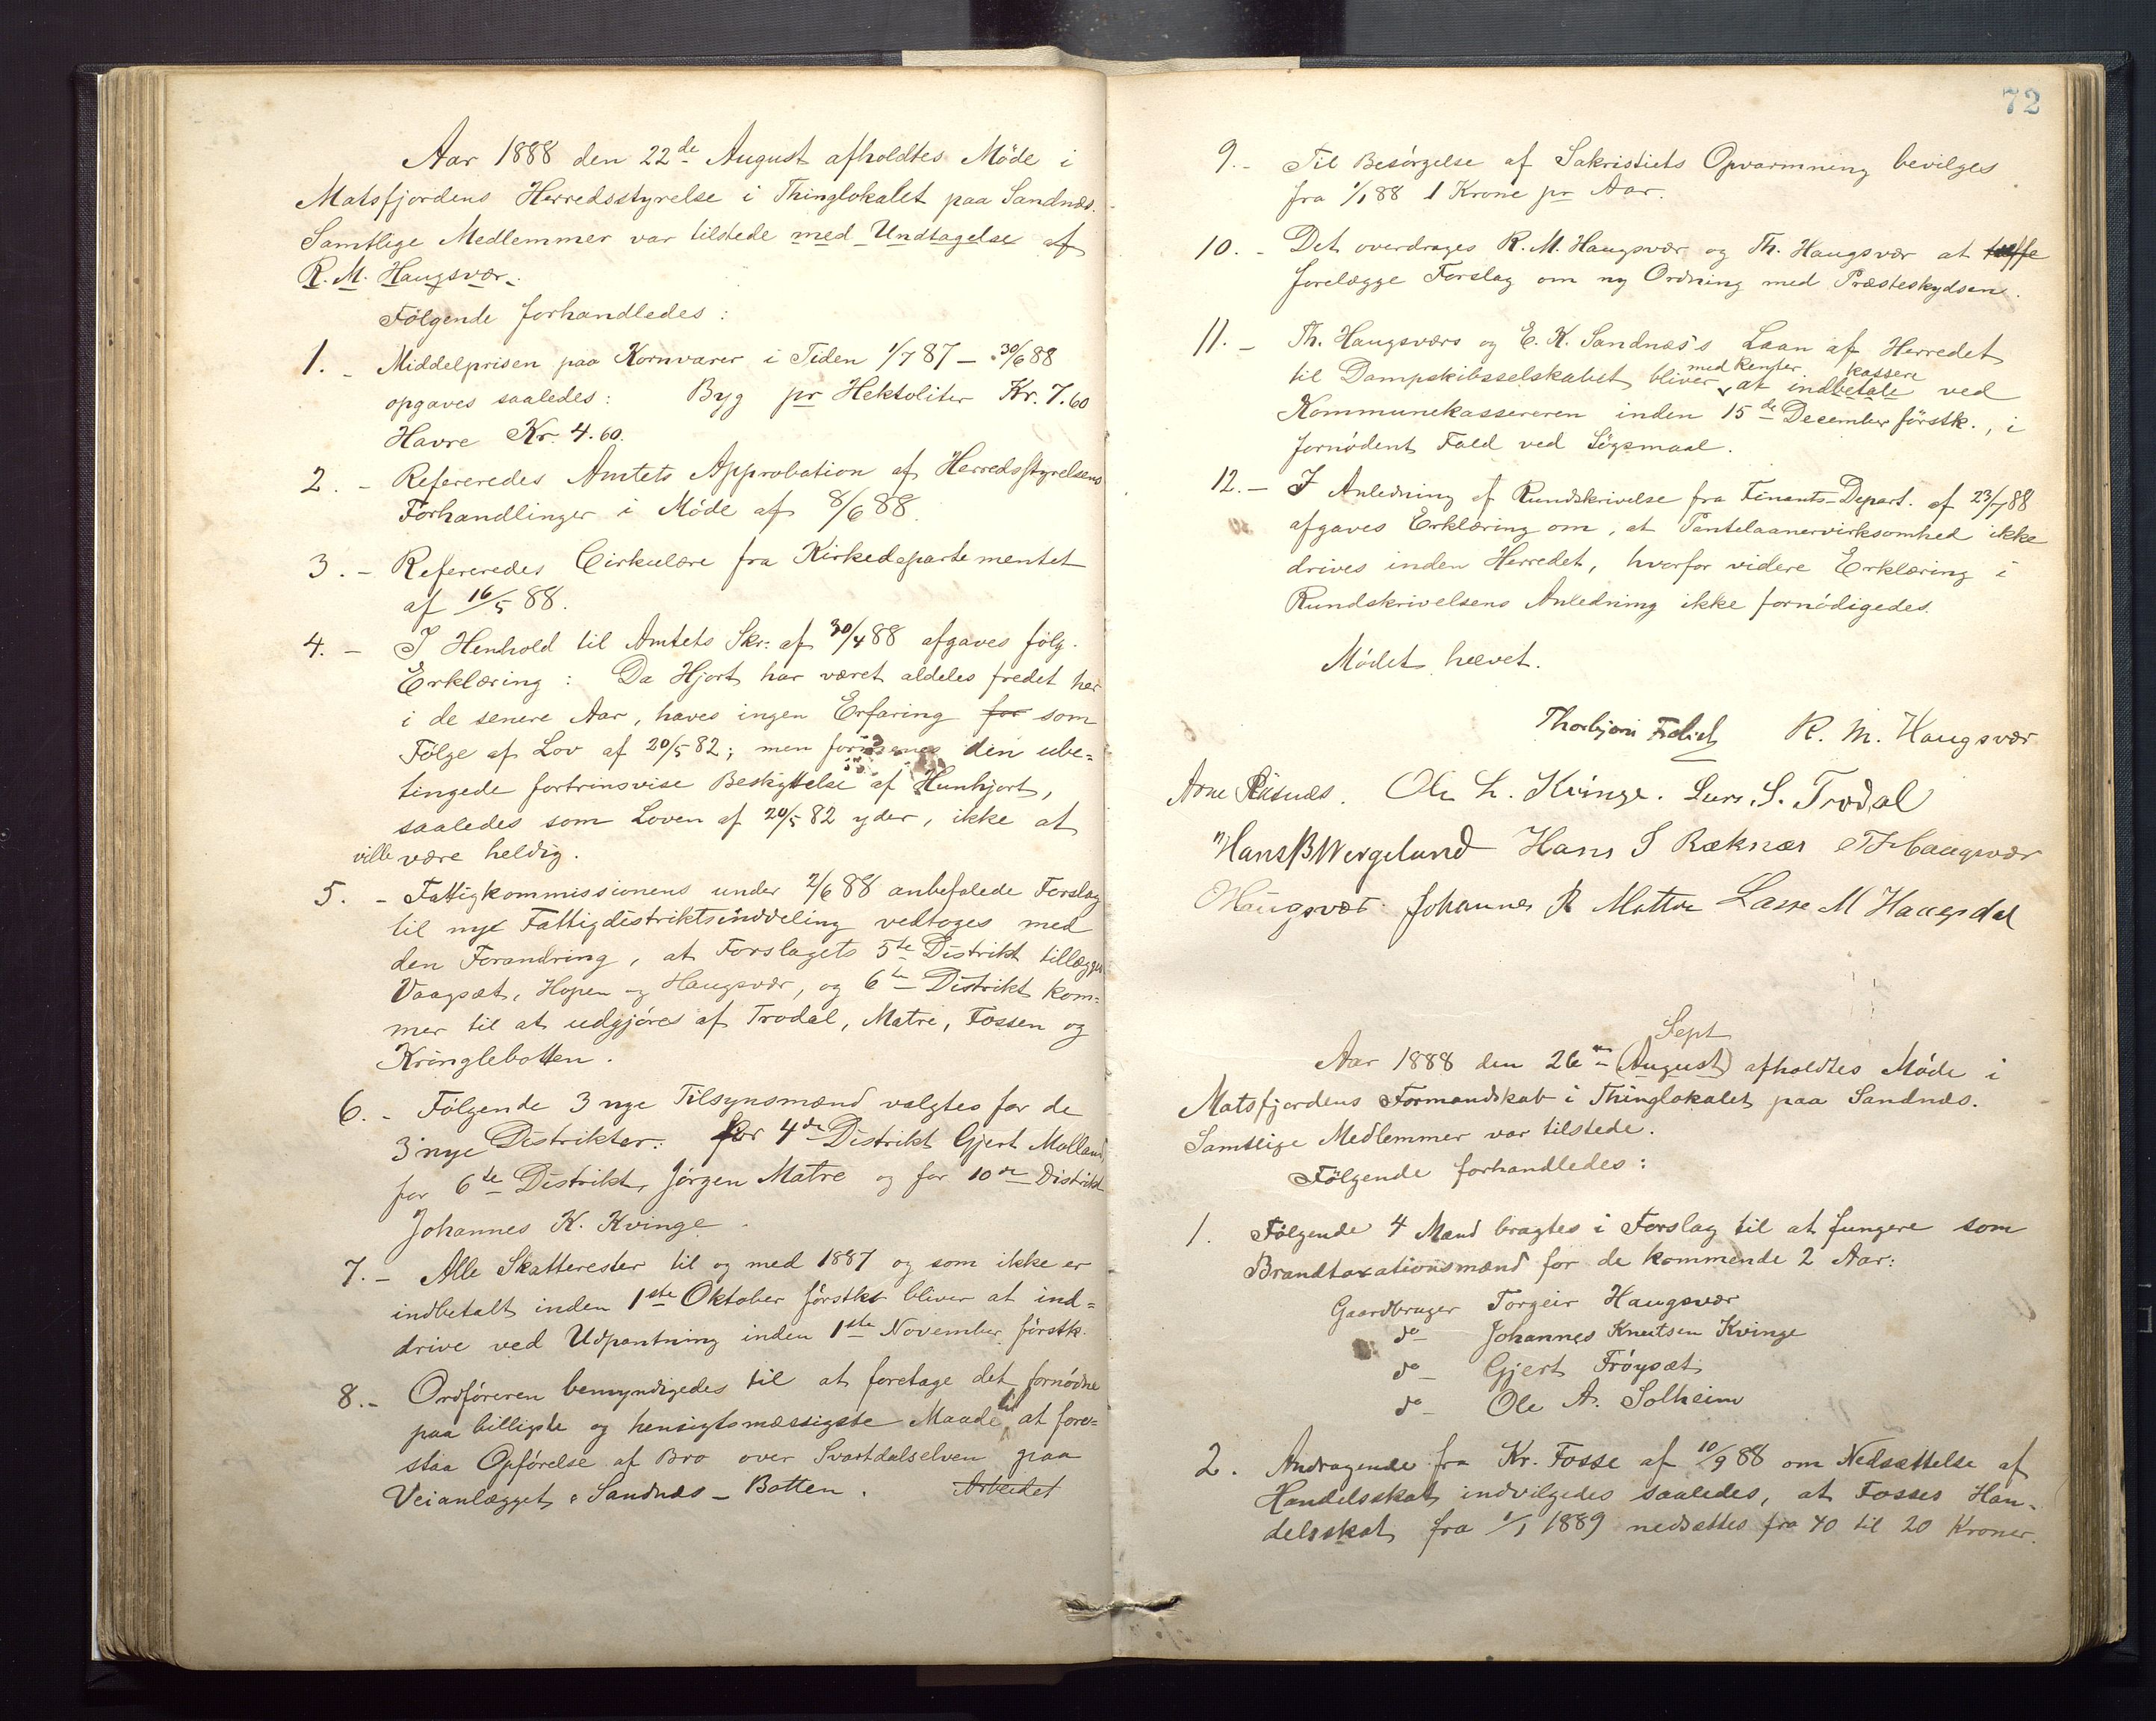 Aar 1888 den 22de August afholdtes Möde i
Matsfjordens Herredsstyrelse i Thinglokalet paa Sandnæs.
Samtlige Medlemmer var tilstede med Undtagelse af
R. M. Haugsvær.
Fölgende forhandledes:
1. - Middelprisen paa Kornvarer i Tiden 1/7 87 - 30/6 88
opgaves saaledes: Byg pr Hektoliter Kr. 7.60
Havre Kr. 4.60.
2. - Refereredes Amtets Approbation af Herredsstyrelsens
Forhandlinger i Möde af 8/6 88.
3. - Refereredes Cirkulære fra Kirkedepartementet
af 16/5 88.
4. - I Henhold til Amtets Skr: af 30/4 88 afgaves fölg.
Erklæring: Da Hjort har været aldeles fredet her
i de senere Aar, haves ingen Erfaring for som
Fölge af Lov af 20/5 82; men formenes den ube=
tingede fortrinsvise Beskyttelse af Hunhjort,
saaledes som Loven af 20/5 82 yder, ikke at
ville være heldig.
5. - Fattigkommissionens under 2/6 88 anbefalede Forslag
til nye Fattigdistriktsinddeling vedtoges med
den Forandring, at Forslagets 5te Distrikt tillægges
Vaagsæt, Hopen og Haugsvær, og 6te Distrikt kom=
mer til at udgjöres af Trodal, Matre, Fossen og
Kringlebotten.
6. - Fölgende 3 nye Tilsynsmænd valgtes for de
3 nye Distrikter: for 4de Distrikt Gjert Molland,
for 6te Distrikt, Jörgen Matre og for 10de Distrikt
Johannes K. Kvinge.
7. - Alle Skatterester til og med 1887 og som ikke er
indbetalt inden 1ste Oktober förstk bliver at ind=
drive ved Udpantning inden 1ste November förstk.
8. - Ordföreren bemyndigedes til at foretage det fornödne
paa billigste og hensigtsmæssigste Maade til at fore=
staa Opförelse af Bro over Svartdalselven paa
Veianlægget Sandnæs - Botten. Arbeidet
72
9. - Til Besörgelse af Sakristiets Opvarmning bevilges
fra 1/1 88 1 Krone pr Aar.
10. - Det overdrages R. M. Haugsvær og Th. Haugsvær at træffe
forelægge Forslag om ny Ordning med Præsteskydsen.
11. - Th. Haugsværs og E. K. Sandnæs's Laan af Herredet
med Renter kassere
til Dampskibsselskabet bliver at indbetale ved
Kommunekassereren inden 15de December förstk., i
fornödent Fald ved Sögsmaal.
12. - I Anledning af Rundskrivelse fra Finants-Depart. af 23/7 88
afgaves Erklæring om, at Pantelaanervirksomhed ikke
drives inden Herredet, hvorfor videre Erklæring i
Rundskrivelsens Anledning ikke fornödigedes.
Mödet hævet.
Thorbjörn R. M. Haugsvær
Arne Ole L. Kvinge. Lars. S. Trodal
Hans B Wergeland Hans S Ræknæs T Haugsvær
Haugsvær Johannes R Mattre Lasse M Haugsdal
Sept
Aar 1888 den 26de (August) afholdtes Möde i
Matsfjordens Formandskab i Thinglokalet paa Sandnæs.
Samtlige Medlemmer var tilstede.
Fölgende forhandledes:
1. Fölgende 4 Mænd bragtes i Forslag til at fungere som
Brandtaxationsmænd for de kommende 2 Aar:
Gaardbruger Torgeir Haugsvær
do - Johannes Knutsen Kvinge
do - Gjert Fröysæt
do - Ole A. Solheim
2. Andragende fra Kr. Fosse af 10/9 88 om Nedsættelse af
Handelsskat indvilgedes saaledes, at Fosses Han=
delsskat fra 1/1 1889 nedsattes fra 40 til 20 Kroner.